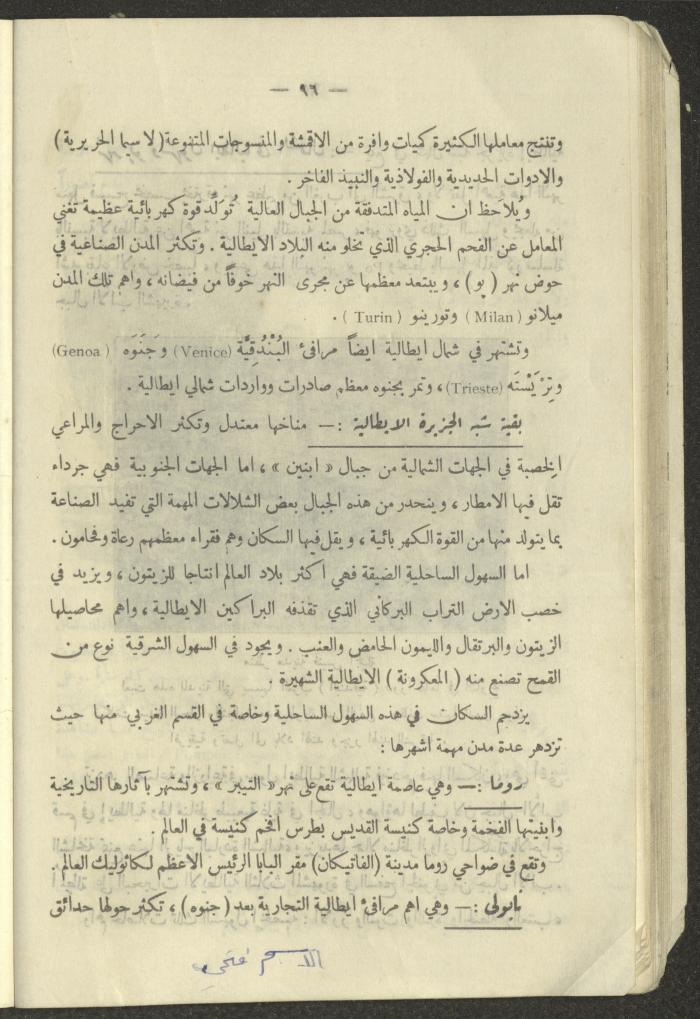 — ٩٦ —
وتنتج معاملها الكثيرة كميات وافرة من الاقمشة والمنسوجات المتنوعة (لا سيما الحريرية)
والادوات الحديدية والفولاذية والنبيذ الفاخر .
ويُلاحَظ ان المياه المتدفقة من الجبال العالية تُوَلِّد قوة كهربائية عظيمة تغني
المعامل عن الفحم الحجري الذي تخلو منه البلاد الايطالية . وتكثر المدن الصناعية في
حوض نهر ( پو ) ، ويبتعد معظمها عن مجرى النهر خوفاً من فيضانه ، واهم تلك المدن
ميلانو ( Milan ) وتورينو ( Turin ) .
وتشتهر في شمال ايطالية ايضاً مرافئ البُنْدُقِيَّة (Venice) وجَنَوَه (Genoa )
وتِرْيَسْتَه (Trieste) ، وتمر بجنوه معظم صادرات وواردات شمالي ايطالية .
بقية شبه الجزيرة الايطالية :— مناخها معتدل وتكثر الاحراج والمراعي
الخصبة في الجهات الشمالية من جبال « ابنين » ، اما الجهات الجنوبية فهي جرداء
تقل فيها الامطار ، وينحدر من هذه الجبال بعض الشلالات المهمة التي تفيد الصناعة
بما يتولد منها من القوة الكهربائية ، ويقل فيها السكان وهم فقراء معظمهم رعاة وفحامون .
اما السهول الساحلية الضيقة فهي اكثر بلاد العالم انتاجا للزيتون ، ويزيد في
خصب الارض التراب البركاني الذي تقذفه البراكين الايطالية ، واهم محاصيلها
الزيتون والبرتقال والليمون الحامض والعنب . ويجود في السهول الشرقية نوع من
القمح تصنع منه ( المعكرونة ) الايطالية الشهيرة .
يزدحم السكان في هذه السهول الساحلية وخاصة في القسم الغربي منها حيث
تزدهر عدة مدن مهمة اشهرها :
روما :— وهي عاصمة ايطالية تقع على نهر « التيبر » ، وتشتهر بآثارها التاريخية
وابنيتها الفخمة وخاصة كنيسة القديس بطرس افخم كنيسة في العالم .
وتقع في ضواحي روما مدينة (الفاتيكان) مقر البابا الرئيس الاعظم لكاثوليك العالم .
نابولي :— وهي اهم مرافئ ايطالية التجارية بعد ( جنوه ) ، تكثر حولها حدائق